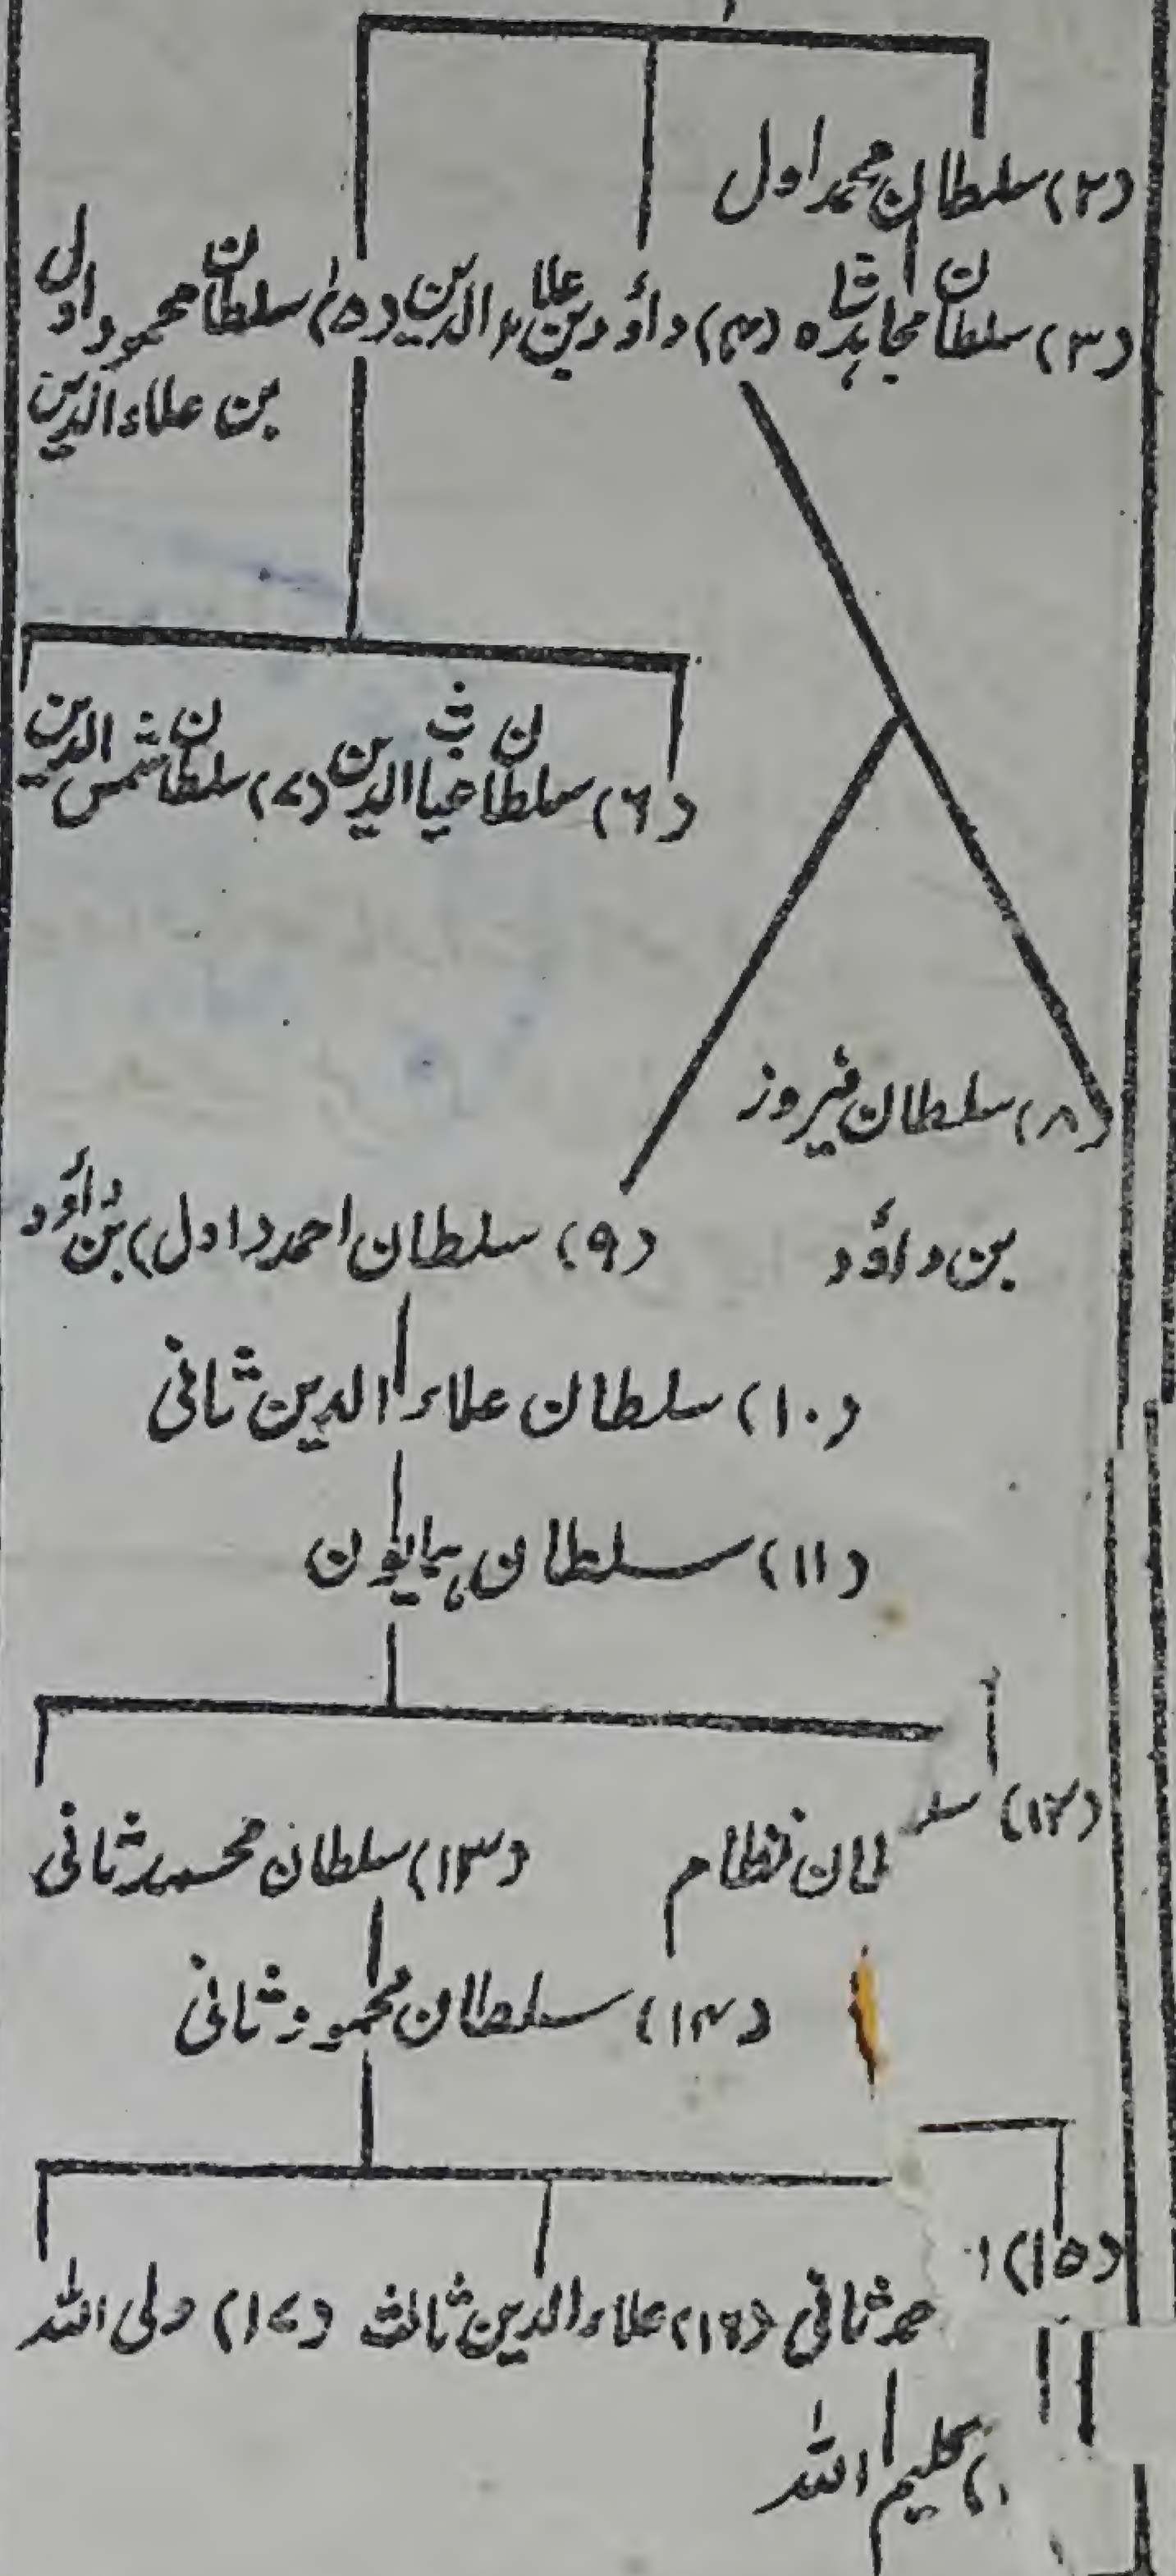 (۲) سلطان محمد اول
(۳) سلطان مجاہد شاہ (۴) داؤد بن علاء الدین (۵) سلطان محمود اول
بن علاء الدین
(۶) سلطان غیاث الدین (۷) سلطان شمس الدین
(۸) سلطان فیروز
بن داؤد
(۹) سلطان احمد (اول) بن داؤد
(۱۰) سلطان علاء الدین ثانی
(۱۱) سلطان ہمایوں
(۱۲) سلطان نظام (۱۳) سلطان محمد ثانی
(۱۴) سلطان محمود ثانی
(۱۵) احمد ثانی (۱۶) علاء الدین ثالث (۱۷) ولی اللہ
کلیم اللہ